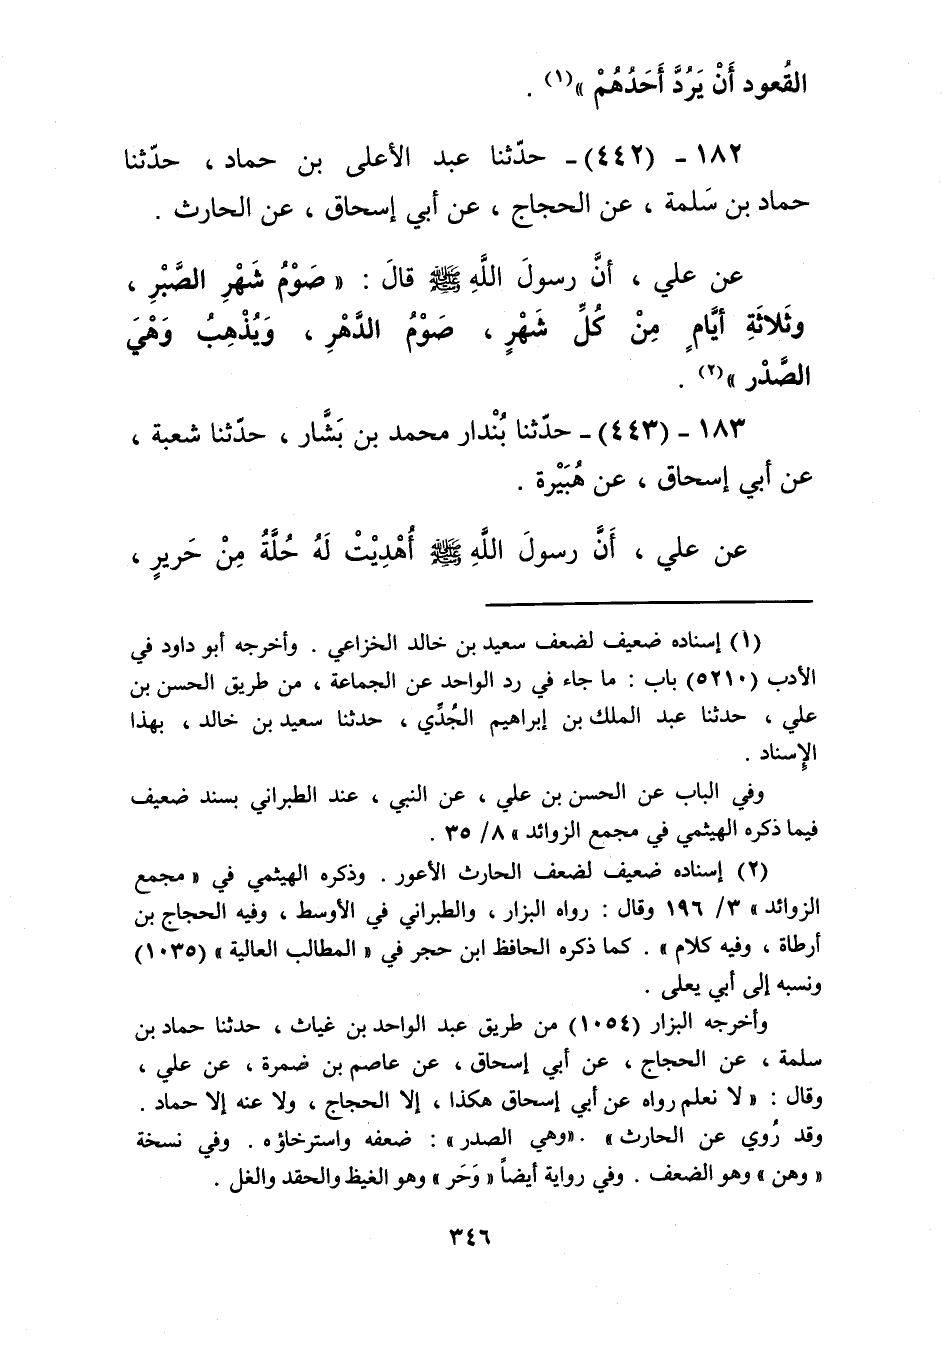 القُعود أَنْ يَرُدَّ أَحَدُهُمْ »(١) .
١٨٢ - (٤٤٢) - حدّثنا عبد الأعلى بن حماد ، حدّثنا
حماد بن سَلمة ، عن الحجاج ، عن أبي إسحاق ، عن الحارث .
عن علي ، أنَّ رسولَ اللَّهِ ﷺ قالَ : « صَوْمُ شَهْرِ الصَّبْرِ ،
وثَلاثَةِ أيَّامٍ مِنْ كُلِّ شَهْرٍ ، صَوْمُ الدَّهْرِ ، وَيُذْهِبُ وَهْيَ
الصَّدْر »(٢) .
١٨٣ - (٤٤٣) - حدّثنا بُنْدار محمد بن بَشَّار ، حدّثنا شعبة ،
عن أبي إسحاق ، عن هُبَيْرة .
عن علي ، أَنَّ رسولَ اللَّهِ ﷺ أُهْدِيْتْ لَهُ حُلَّةُ مِنْ حَريرٍ ،
(١) إسناده ضعيف لضعف سعيد بن خالد الخزاعي . وأخرجه أبو داود في
الأدب (٥٢١٠) باب : ما جاء في رد الواحد عن الجماعة ، من طريق الحسن بن
علي ، حدثنا عبد الملك بن إبراهيم الجُدِّي ، حدثنا سعيد بن خالد ، بهذا
الإِسناد .
وفي الباب عن الحسن بن علي ، عن النبي ، عند الطبراني بسند ضعيف
فيما ذكره الهيثمي في مجمع الزوائد » ٨/ ٣٥ .
(٢) إسناده ضعيف لضعف الحارث الأعور . وذكره الهيثمي في « مجمع
الزوائد » ٣/ ١٩٦ وقال : رواه البزار ، والطبراني في الأوسط ، وفيه الحجاج بن
أرطاة ، وفيه كلام » . كما ذكره الحافظ ابن حجر في « المطالب العالية » (١٠٣٥)
ونسبه إلى أبي يعلى .
وأخرجه البزار (١٠٥٤) من طريق عبد الواحد بن غياث ، حدثنا حماد بن
سلمة ، عن الحجاج ، عن أبي إسحاق ، عن عاصم بن ضمرة ، عن علي ،
وقال : « لا نعلم رواه عن أبي إسحاق هكذا ، إلا الحجاج ، ولا عنه إلا حماد .
وقد رُوي عن الحارث » . «وهي الصدر» : ضعفه واسترخاؤه . وفي نسخة
« وهن » وهو الضعف . وفي رواية أيضاً « وَحَر » وهو الغيظ والحقد والغل .
٣٤٦